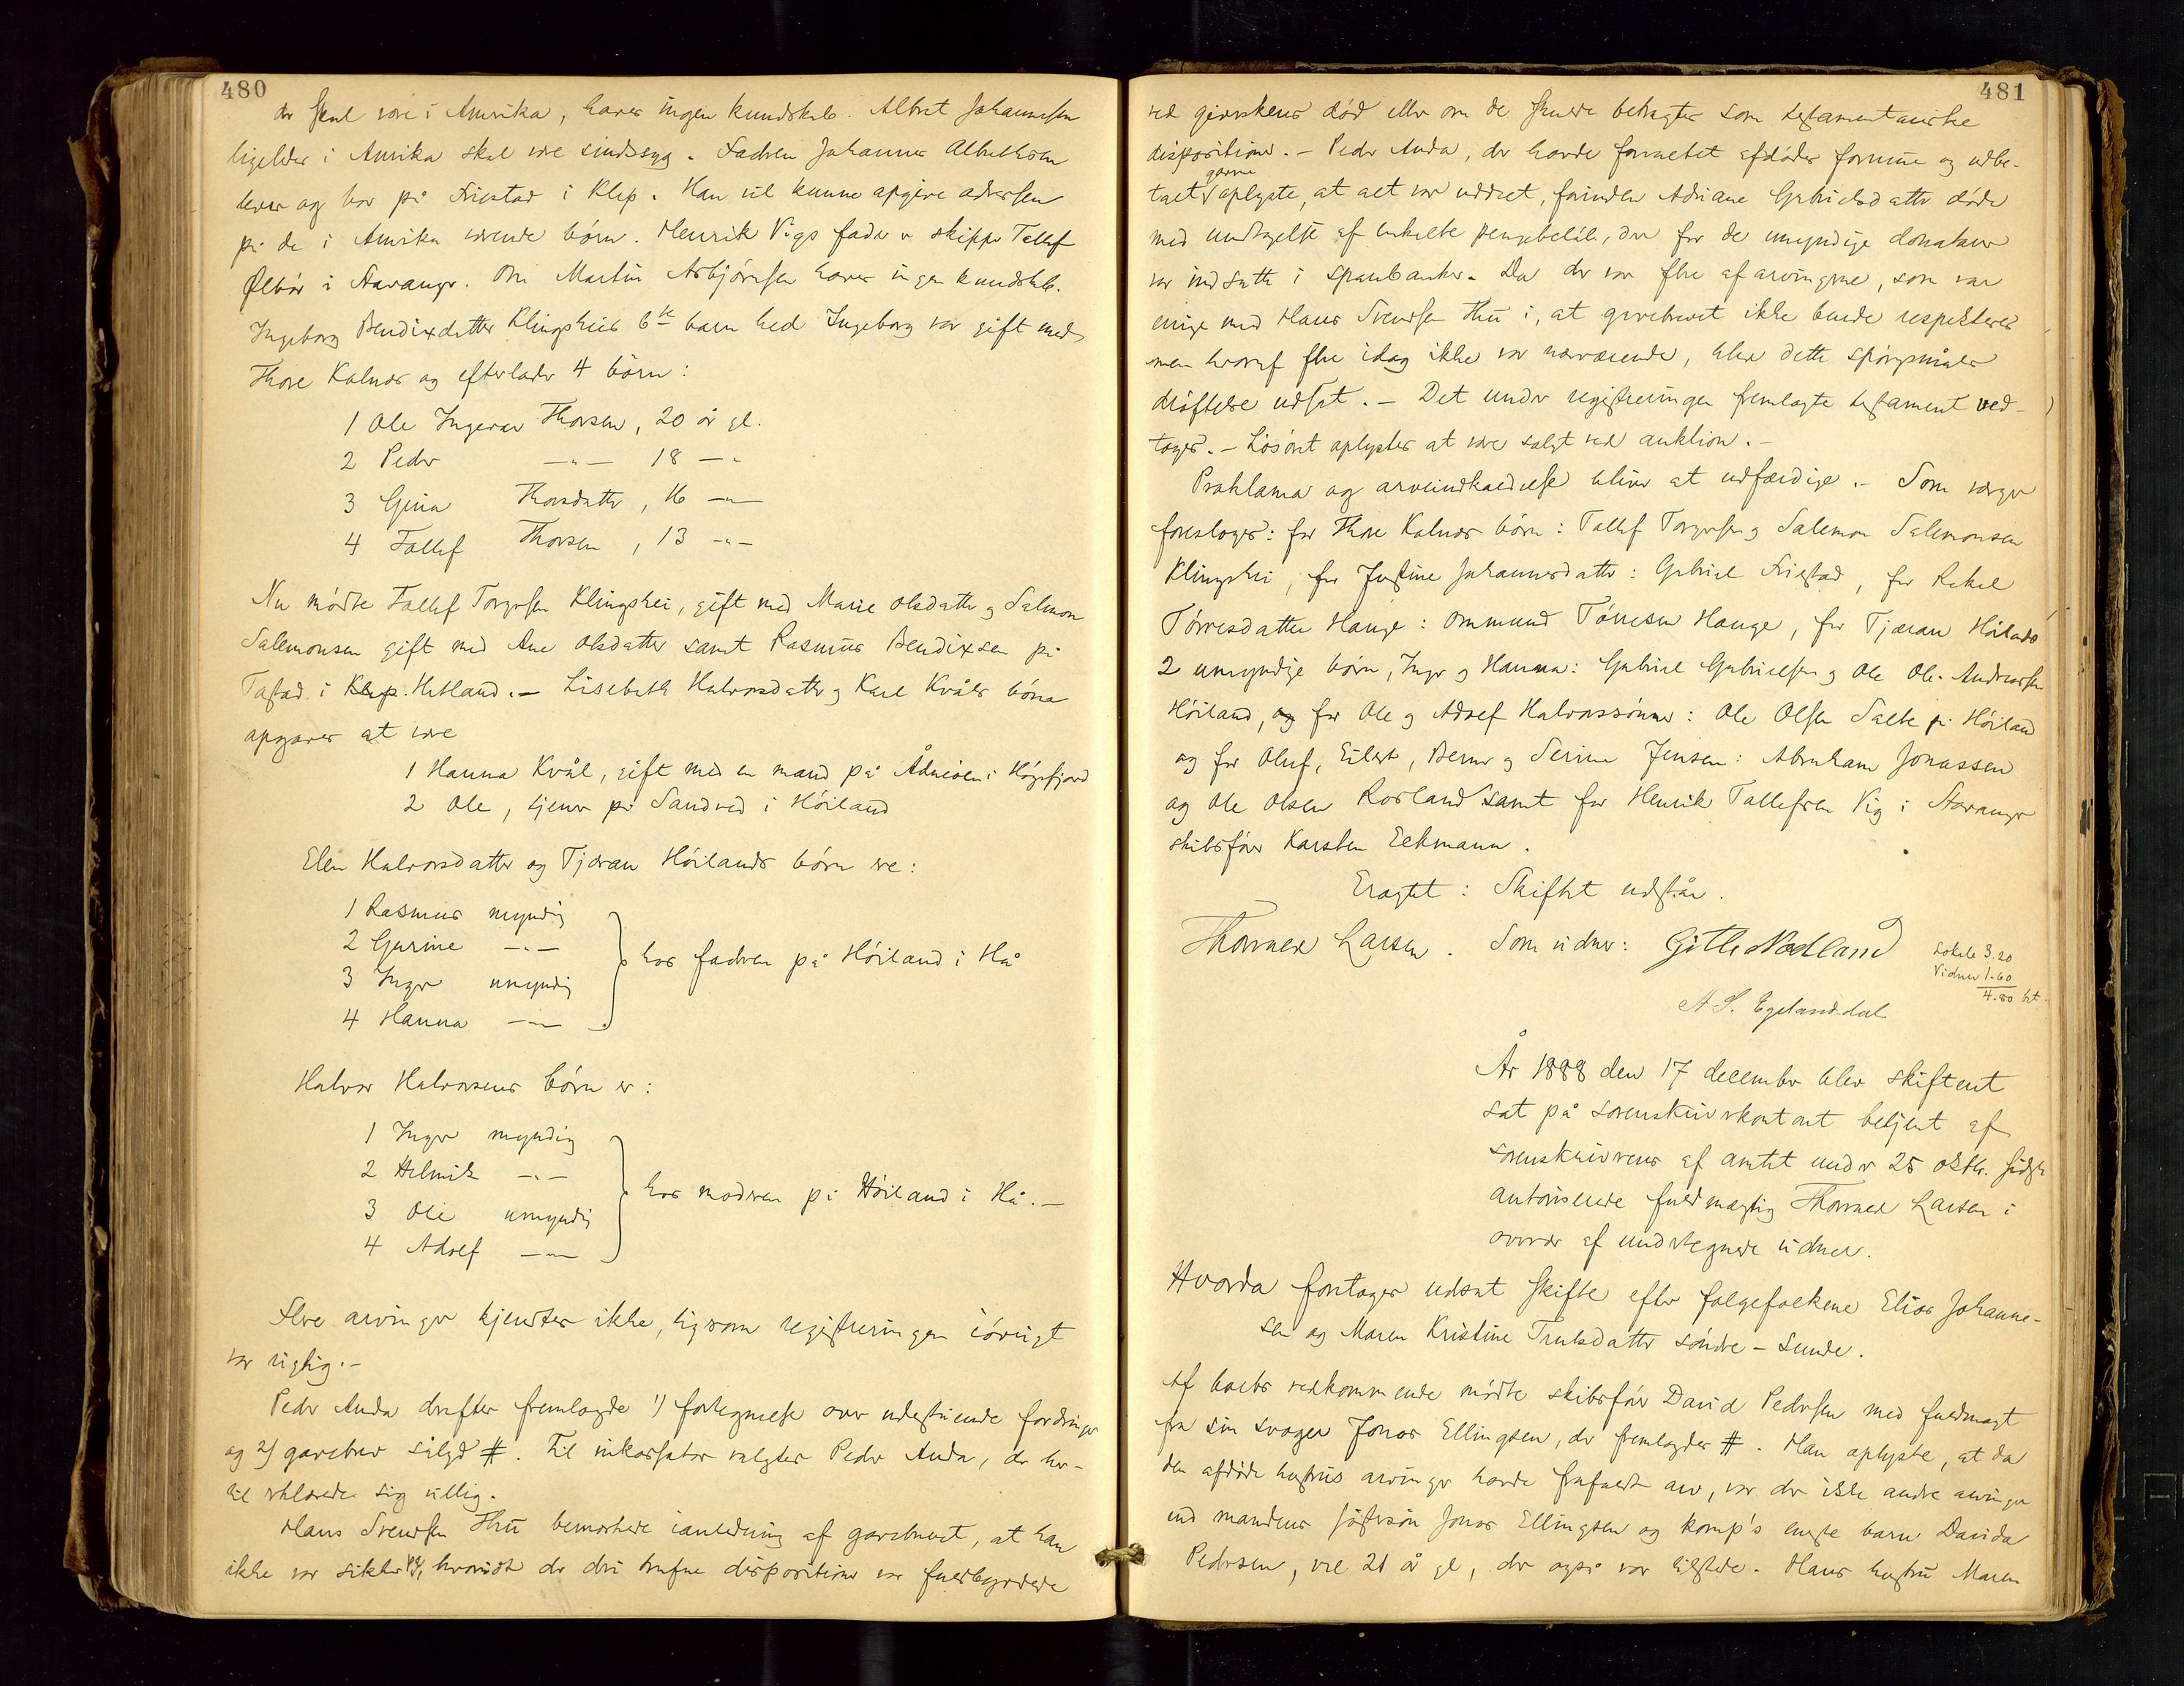 480
der skal være i Amerika, haves ingen kundskab. Albret Johannessen
ligeledes i Amerika skal være sindssyg. Faderen Johannes Albretsen
lever og bor på Friestad i Klep. Han vil kunne opgive adressen
på de i Amerika værende börn. Henrik Vigs fader er skipper Tallef
Ölbör i Stavanger. Om Martin Asbjörnsen haves ingen kundskab.
Ingeborg Bendixdatter Klingsheis 6te barn hed Ingeborg var gift med
Thore Kalnæs og efterlader 4 börn:
1 Ole Ingevar Thorsen, 20 år gl.
2 Peder —"— 18 —"
3 Gina Thorsdatter, 16 —"—
4 Tallef Thorsen, 13 —"—
Nu mödte Tallef Torgersen Klingshei, gift med Marie Olsdatter og Salmon
Salemonsen gift med Ane Olsdatter samt Rasmus Bendixsen på
Tastad i Klep. Hetland. — Lisebeth Halvorsdatter og Karl Kvåls börn
opgaves at være
1 Hanna Kvål, gift med en mand på Ådneöen i Högsfjord
2 Ole, tjener på Sandved i Höiland
Elen Halvorsdatter og Tjæran Höilands börn ere:
1 Rasmus myndig
2 Gurine —"—
3 Inger umyndig
4 Hanna —"—
hos faderen på Höiland i Hå
Halvor Halvorsens börn er:
1 Inger myndig
2 Helmik —"—
3 Ole umyndig
4 Adsef —"—
hos moderen på Höiland i Hå. —
Flere arvinger kjendtes ikke, ligesom registreringen iövrigt
var rigtig. —
Peder Anda derefter fremlagde 1) fortegnelse over udestående fordringer
og 2) gavebrev sålyd #. Til inkassator valgtes Peder Anda, der her-
til erklærede sig villig.
Hans Svendsen Thu bemærkede i anledning af gavebrevet, at han
ikke var sikker på, hvorvidt de deri trufne dispositioner var fuldbyrdede
481
ved giverskens död eller om de skulde betragtes som testamentariske
dispositioner. — Peder Anda, der havde forvaltet afdödes formue og udbe-
talt gaverne oplyste, at alt var uddelt, forinden Adriane Gabrielsdatter döde
med undtagelse af enkelte pengebelöb, der for de umyndige donatarer
var indsatte i sparebanker. Da der var flere af arvingerne, som var
enige med Hans Svendsen Thu i, at gavebrevet ikke burde respekteres
men hvoraf flere idag ikke var nærværende, blev dette spörgsmåls
dröftelse udsat. — Det under registreringen fremlagte testament ved-
toges. — Lösöret oplystes at være solgt ved auktion. —
Proklama og arveindkaldelse bliver at udfærdige. — Som værger
foresloges: for Thore Kalnæs börn: Tallef Torgersen og Salemon Salemonsen
Klingshei, for Justine Johannesdatter: Gabriel Friestad, for Rakel
Törresdatter Hauge: Ommund Törresen Hauge, for Tjæran Höilands
2 umyndige börn, Inger og Hanna: Gabriel Gabrielsen og Ole Ole Andreassen
Höiland, og for Ole og Adsef Halvorssönner: Ole Olsen Salte på Höiland
og for Oluf, Eilert, Berner og Serine Jensen: Abraham Jonassen
og Ole Olsen Rosland samt for Henrik Tallefsen Vig i Stavanger
skibsförer Karsten Eckmann.
Eragtet: Skiftet udstår.
Thorvald Larsen. Som vidner: Gitle Nedland
A S. Egelandsdal
Lokale 3.20
Vidner 1.60
4.80 bet.
År 1888 den 17 december blev skifteret
sat på sorenskriverkontoret betjent af
sorenskriverens af amtet under 25 oktbr. sidste
autoriserede fuldmægtig Thorvald Larsen i
overvær af undertegnede vidner.
Hvorda foretoges udsat skifte efter folgefolkene Elias Johanne-
sen og Maren Kristine Trulsdatter söndre-Sunde.
Af boets vedkommende mödte skibsförer David Pedersen med fuldmagt
fra sin svoger Jonas Ellingsen, der fremlagdes #. Han oplyste, at da
den afdöde hustrus arvinger havde frafaldt arv, var der ikke andre arvinger
end mandens söstersön Jonas Ellingsen og komp's eneste barn Davida
Pedersen, vel 21 år gl, der også var tilstede. Hans hustru Maren